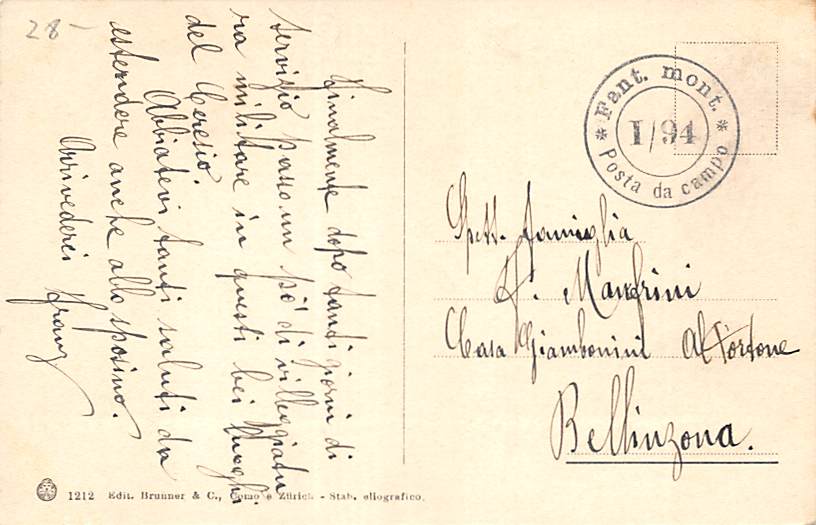 28-
Finalmente dopo tanti giorni di
servizio passo un pò di villeggiatu
ra militare in questi bei luoghi
del Ceresio.
Abbiatevi tanti saluti da
estendere anche allo sposino.
Arrivederci
Franz
* Fant. mont. *
I/94
Posta da campo
Spett. Famiglia
Manfrini
Casa Giambonini Al Portone
Bellinzona.
1212 Edit. Brunner & C., Como e Zürich - Stab. eliografico.